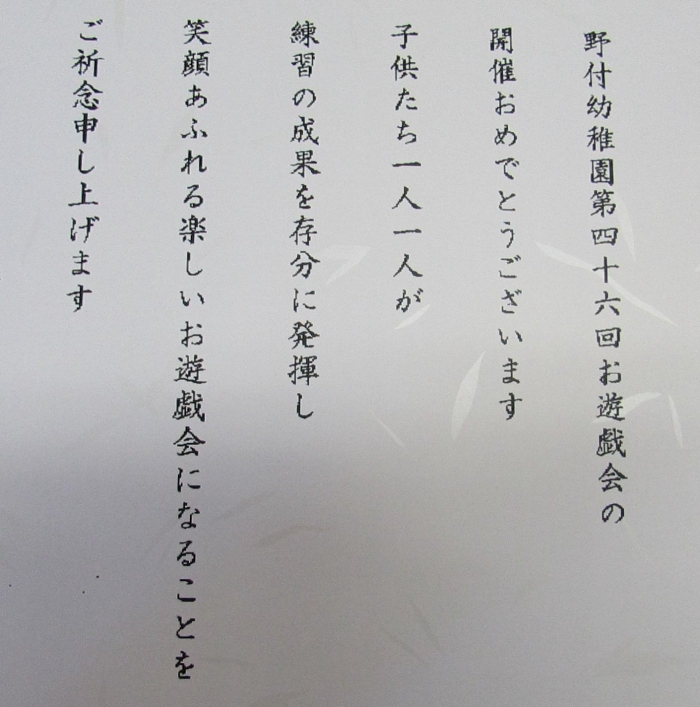 野付幼稚園第四十六回お遊戯会の
開催おめでとうございます
子供たち一人一人が
練習の成果を存分に発揮し
笑顔あふれる楽しいお遊戯会になることを
ご祈念申し上げます